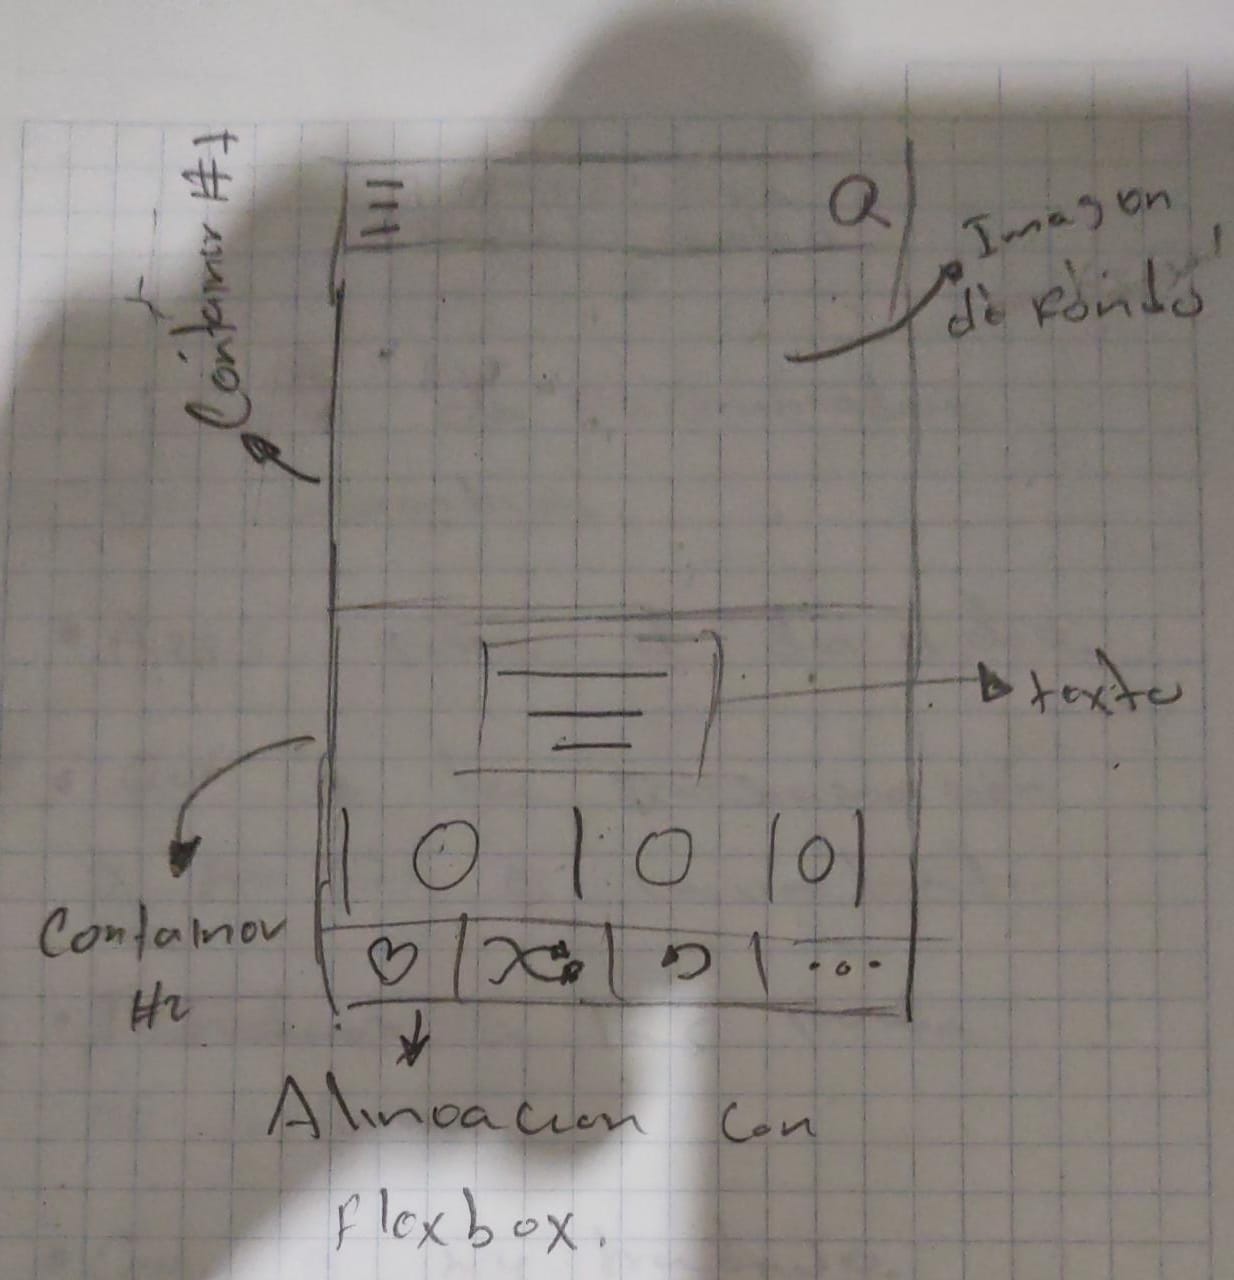 Container #1
Imagen
de fondo
texto
Container
#2
Alineacion con
Flexbox.